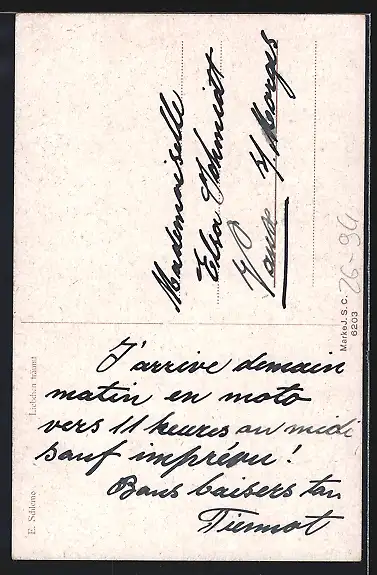 J'arrive demain
matin en moto
vers 11 heures ou midi
sauf imprévu !
Bons baisers ton
Mademoiselle
Elsa Schmidt
Vaux s/ Morges
E. Schlemo Liebchen träumt
Marke J. S. C.
6203
26-94